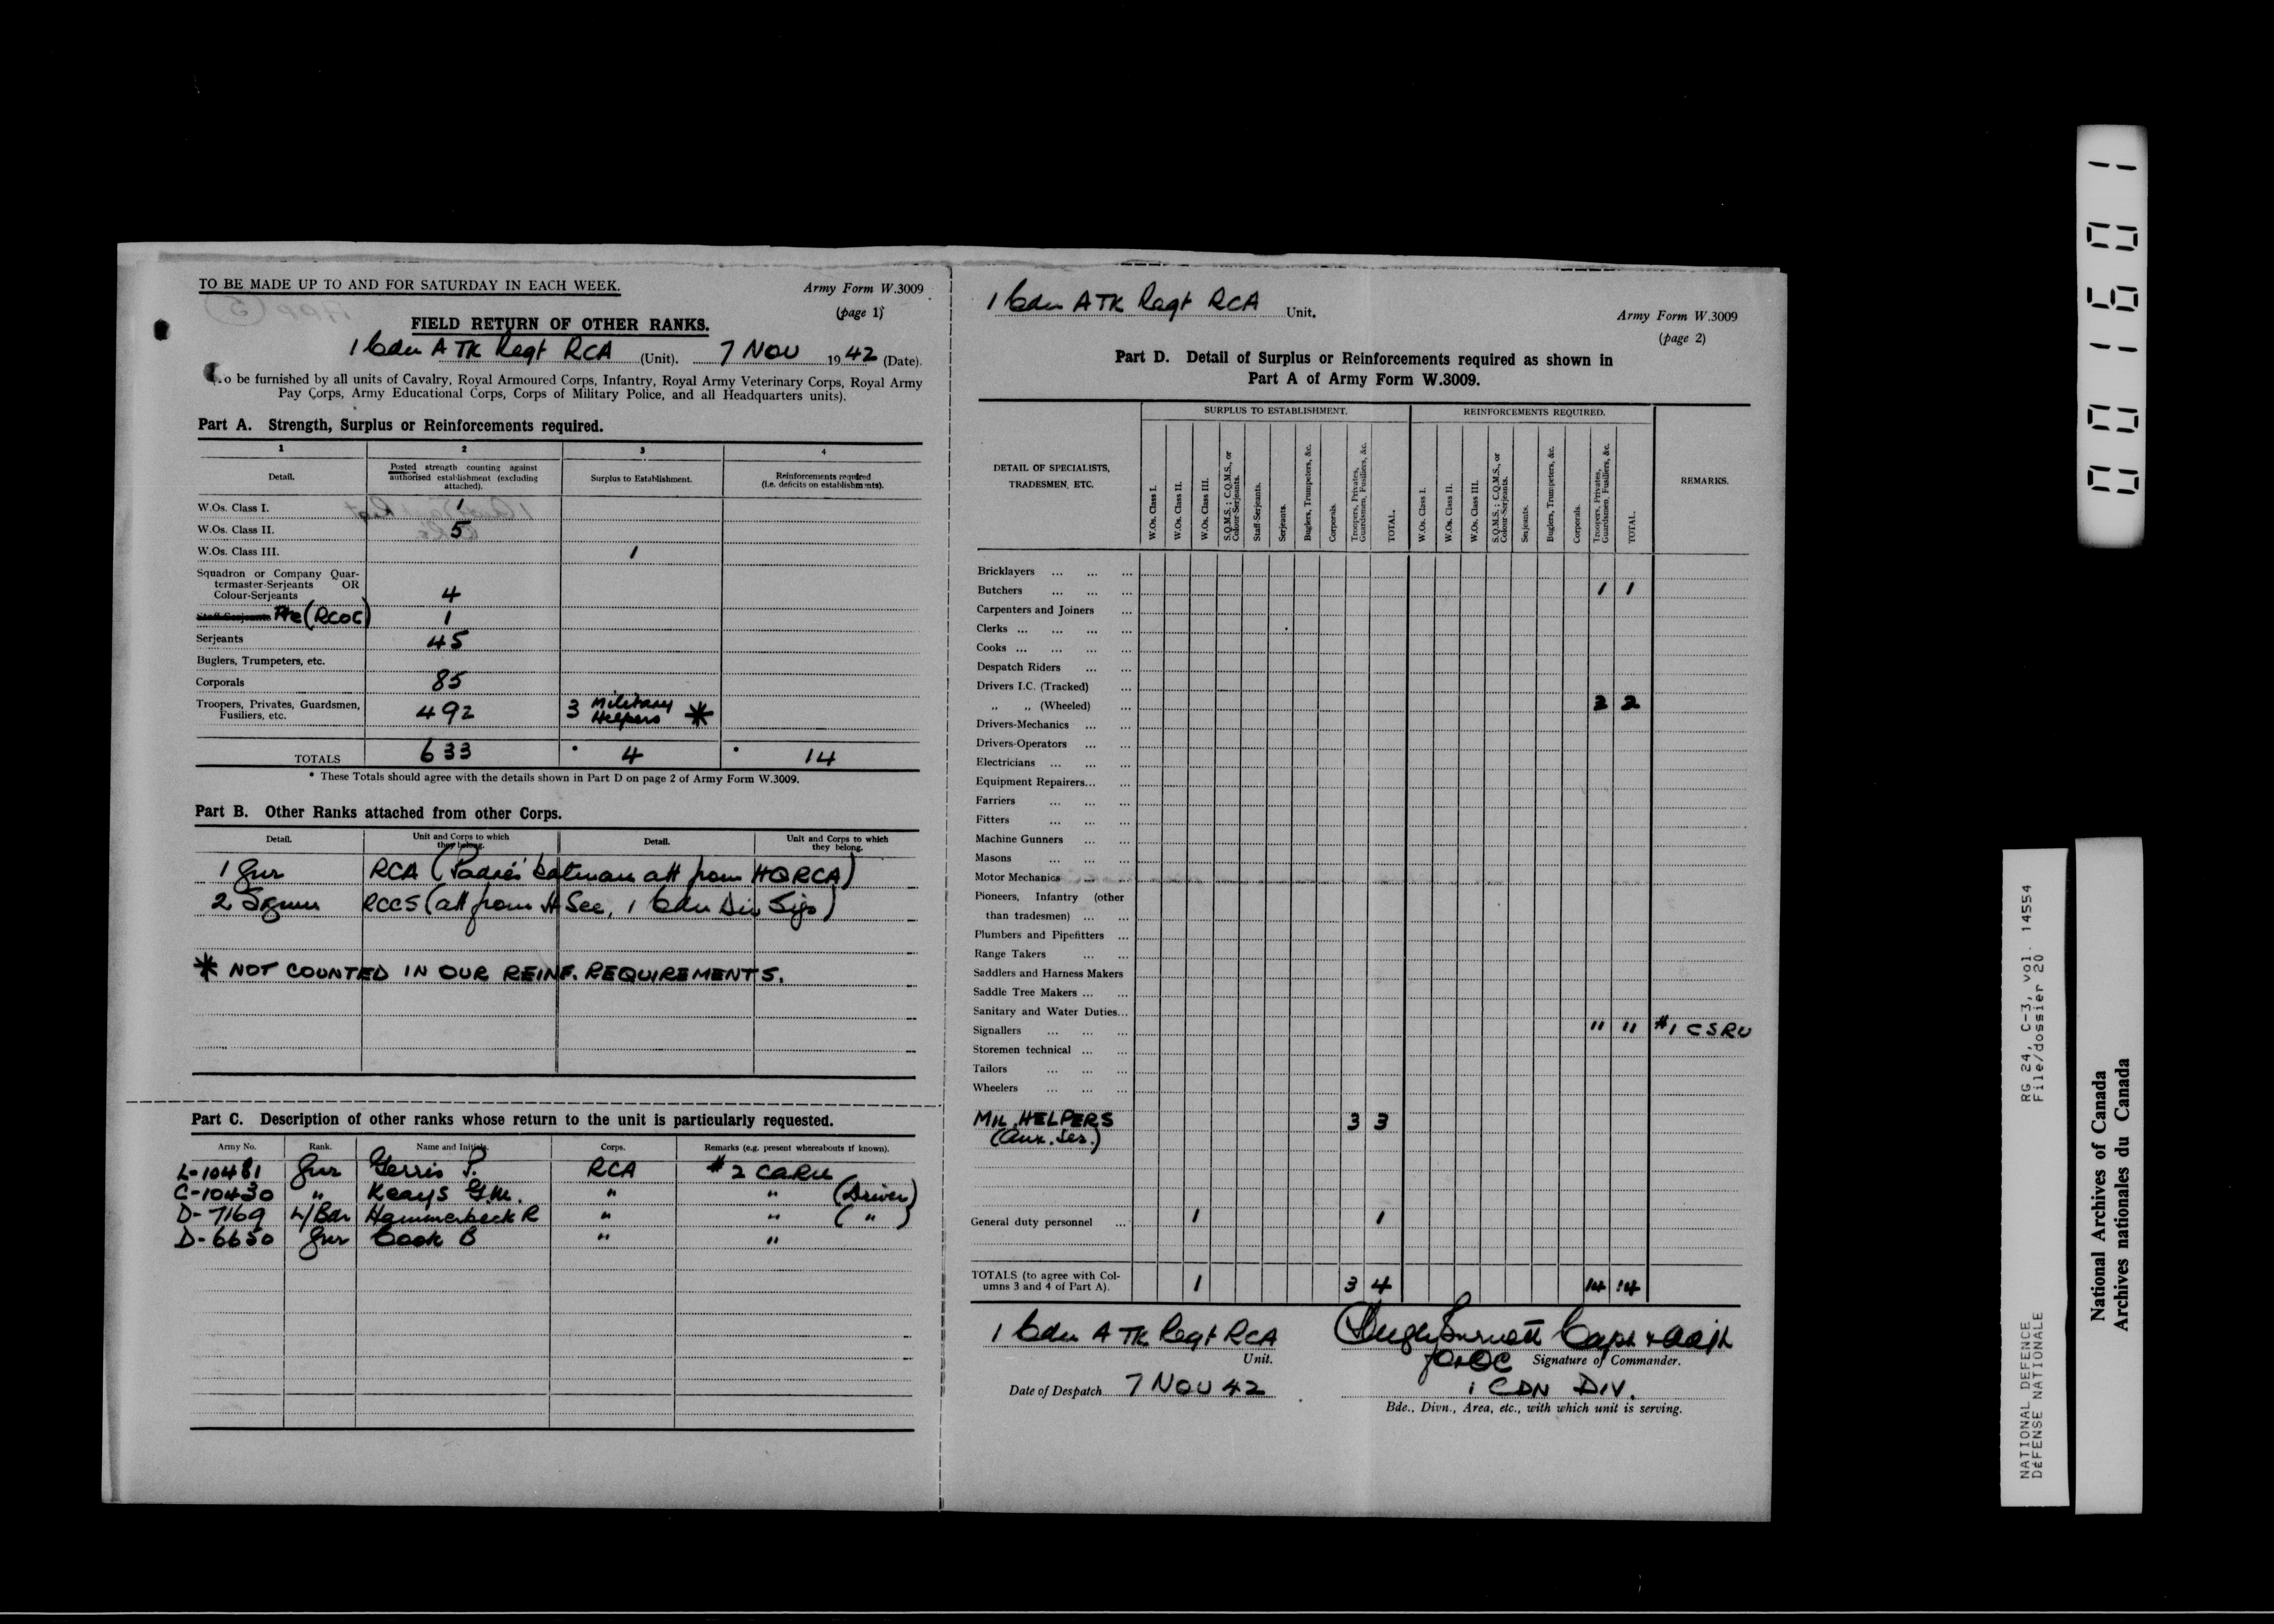 TO BE MADE UP TO AND FOR SATURDAY IN EACH WEEK.
Army Form W.3009
(page 1)
FIELD RETURN OF OTHER RANKS.
1 Cdn A TK Regt RCA (Unit). 7 NOV 1942 (Date).
To be furnished by all units of Cavalry, Royal Armoured Corps, Infantry, Royal Army Veterinary Corps, Royal Army
Pay Corps, Army Educational Corps, Corps of Military Police, and all Headquarters units).
Part A. Strength, Surplus or Reinforcements required.
1 2 3 4
Detail. Posted strength counting against authorised establishment (excluding attached). Surplus to Establishment. Reinforcements required (i.e. deficits on establishments).
W.Os. Class I. 1
W.Os. Class II. 5
W.Os. Class III. 1
Squadron or Company Quar-
termaster-Serjeants OR
Colour-Serjeants 4
Staff-Serjeants Pte (RCOC) 1
Serjeants 45
Buglers, Trumpeters, etc.
Corporals 85
Troopers, Privates, Guardsmen,
Fusiliers, etc. 492 3 Military Helpers *
TOTALS 633 * 4 * 14
* These Totals should agree with the details shown in Part D on page 2 of Army Form W.3009.
Part B. Other Ranks attached from other Corps.
Detail. Unit and Corps to which they belong. Detail. Unit and Corps to which they belong.
1 Gnr RCA (Padre's batman att from HQRCA)
2 Sgmn RCCS (att from H Sec, 1 Cdn Div Sigs)
* NOT COUNTED IN OUR REINF. REQUIREMENTS.
Part C. Description of other ranks whose return to the unit is particularly requested.
Army No. Rank. Name and Initials. Corps. Remarks (e.g. present whereabouts if known).
L-10481 Gnr Gerris P. RCA #2 CARU
C-10430 " Keays G.M. " " (Driver)
D-7169 L/Bdr Hammerbeck R " " ( " )
D-6650 Gnr Cook B " "
1 Cdn A TK Regt RCA Unit.
Army Form W.3009
(page 2)
Part D. Detail of Surplus or Reinforcements required as shown in
Part A of Army Form W.3009.
DETAIL OF SPECIALISTS, TRADESMEN, ETC. SURPLUS TO ESTABLISHMENT. REINFORCEMENTS REQUIRED. REMARKS.
W.Os. Class I. W.Os. Class II. W.Os. Class III. S.Q.M.S.; C.Q.M.S., or Colour-Serjeants. Staff-Serjeants. Serjeants. Buglers, Trumpeters, &c. Corporals. Troopers, Privates, Guardsmen, Fusiliers, &c. TOTAL.
W.Os. Class I. W.Os. Class II. W.Os. Class III. S.Q.M.S.; C.Q.M.S., or Colour-Serjeants. Serjeants. Buglers, Trumpeters, &c. Corporals. Troopers, Privates, Guardsmen, Fusiliers, &c. TOTAL.
Bricklayers ... ... ...
Butchers ... ... ... 1 1
Carpenters and Joiners ...
Clerks ... ... ... ...
Cooks ... ... ... ...
Despatch Riders ... ...
Drivers I.C. (Tracked) ...
" " (Wheeled) ... 2 2
Drivers-Mechanics ... ...
Drivers-Operators ... ...
Electricians ... ... ...
Equipment Repairers... ...
Farriers ... ... ...
Fitters ... ... ...
Machine Gunners ... ...
Masons ... ... ...
Motor Mechanics ... ...
Pioneers, Infantry (other
than tradesmen) ... ...
Plumbers and Pipefitters ...
Range Takers ... ...
Saddlers and Harness Makers
Saddle Tree Makers ... ...
Sanitary and Water Duties...
Signallers ... ... ... 11 11 #1 CSRU
Storemen technical ... ...
Tailors ... ... ...
Wheelers ... ... ...
MIL. HELPERS 3 3
(Aux. Ser.)
General duty personnel ... 1 1
TOTALS (to agree with Col-
umns 3 and 4 of Part A). 1 3 4 14 14
1 Cdn A TK Regt RCA
Unit.
Hugh Burnett Capt & Adjt
for OC Signature of Commander.
Date of Despatch 7 NOV 42
1 CDN DIV.
Bde., Divn., Area, etc., with which unit is serving.
0001601
NATIONAL DEFENCE RG 24, C-3, vol. 14554
DÉFENSE NATIONALE File/dossier 20
National Archives of Canada
Archives nationales du Canada